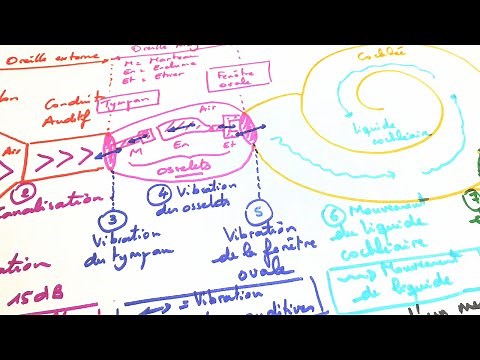 Oreille externe
Oreille moy
M = Marteau
En = Enclume
Et = Etrier
Cochlée
Fenêtre
ovale
Conduit
Auditif
Tympan
Air
Air
M
En
Et
Osselets
liquide
cochléaire
②
Canalisation
④ Vibration
des osselets
③
Vibration
du tympan
⑤
Vibration
de la fenêtre
ovale
⑥ Mouvement
du liquide
cochléaire
⑦
15dB
= Vibration
Mouvement
de liquide